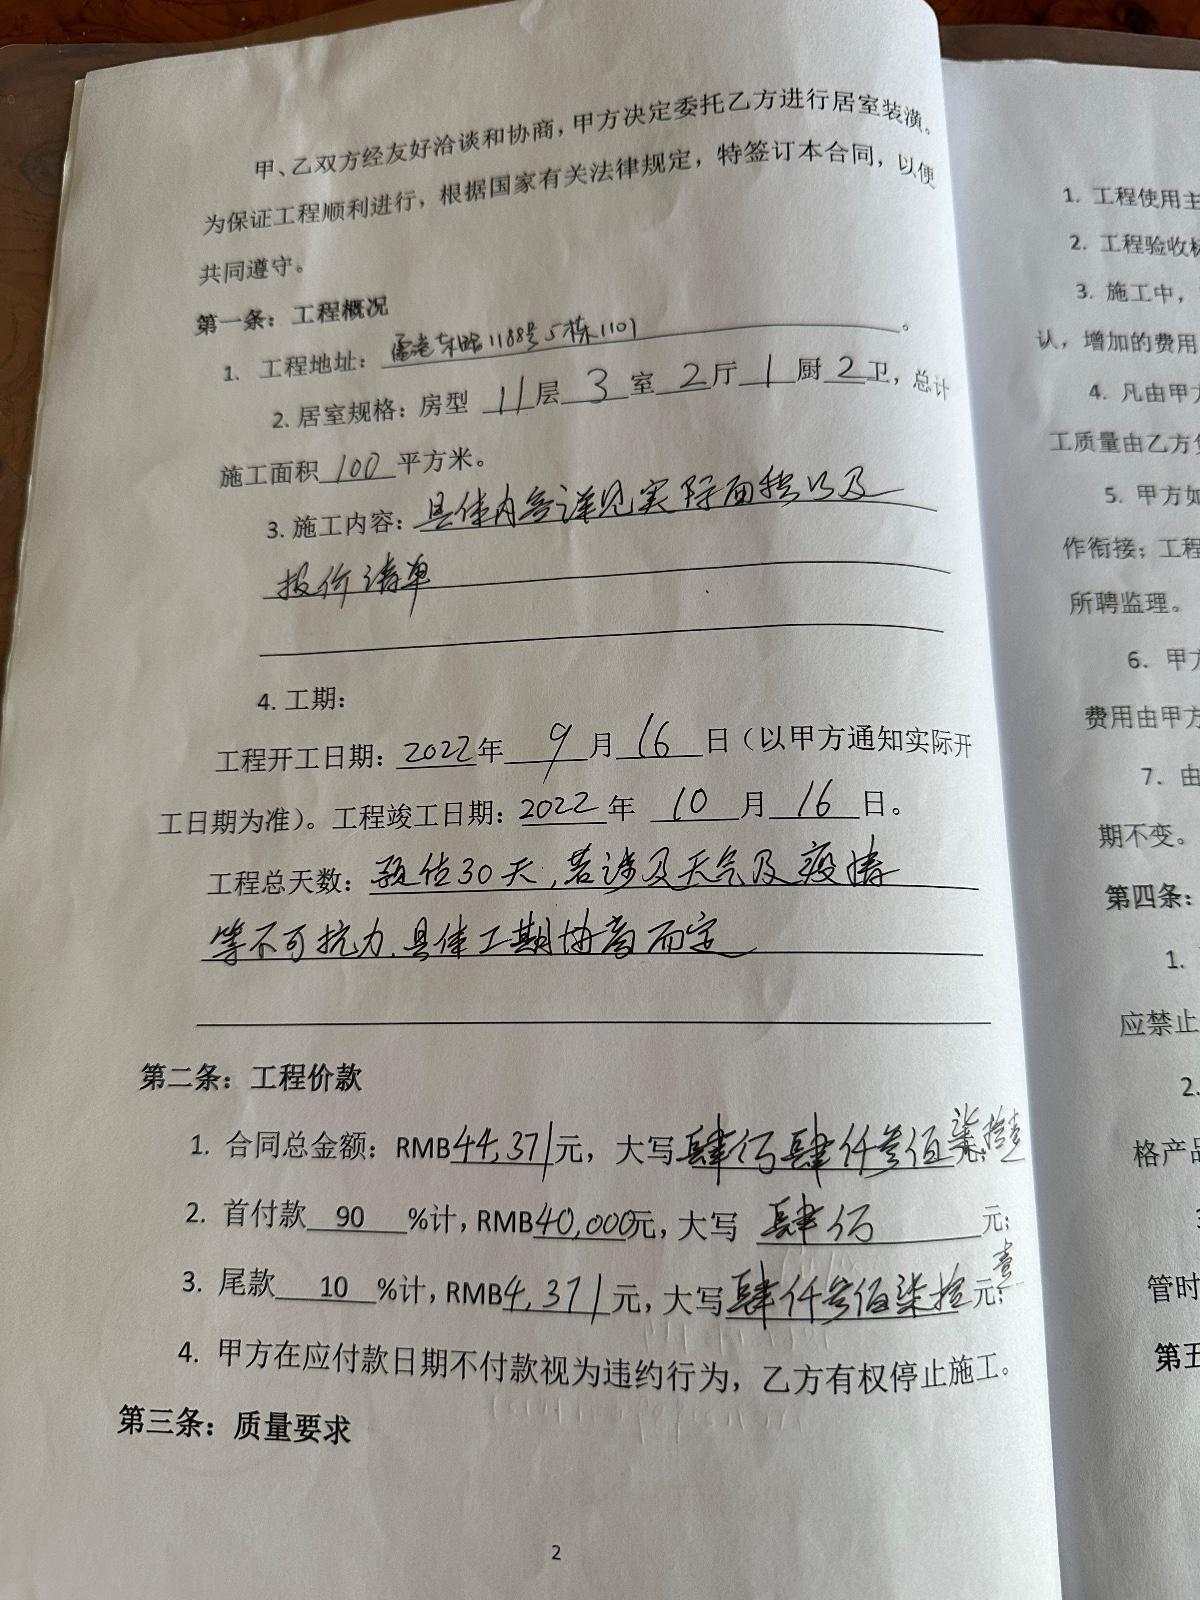 甲、乙双方经友好洽谈和协商，甲方决定委托乙方进行居室装潢。
为保证工程顺利进行，根据国家有关法律规定，特签订本合同，以便
共同遵守。
第一条：工程概况
1. 工程地址：东路1188号5栋1101。
2. 居室规格：房型 11 层 3 室 2 厅 1 厨 2 卫，总计
施工面积 100 平方米。
3. 施工内容：具体内容详见实际面积以及
报价清单
4. 工期：
工程开工日期：2022年 9 月 16 日（以甲方通知实际开
工日期为准）。工程竣工日期：2022 年 10 月 16 日。
工程总天数：预估30天，若涉及天气及疫情
等不可抗力，具体工期协商而定
第二条：工程价款
1. 合同总金额：RMB44,371元，大写肆万肆仟叁佰柒拾壹元；
2. 首付款 90 %计，RMB40,000元，大写 肆万 元；
3. 尾款 10 %计，RMB4,371元，大写肆仟叁佰柒拾壹元；
4. 甲方在应付款日期不付款视为违约行为，乙方有权停止施工。
第三条：质量要求
2
1. 工程使用主
2. 工程验收标
3. 施工中，
认，增加的费用
4. 凡由甲方
工质量由乙方负
5. 甲方如
作衔接；工程
所聘监理。
6. 甲方
费用由甲方
7. 由
期不变。
第四条：
1.
应禁止
2.
格产品
3
管时
第五